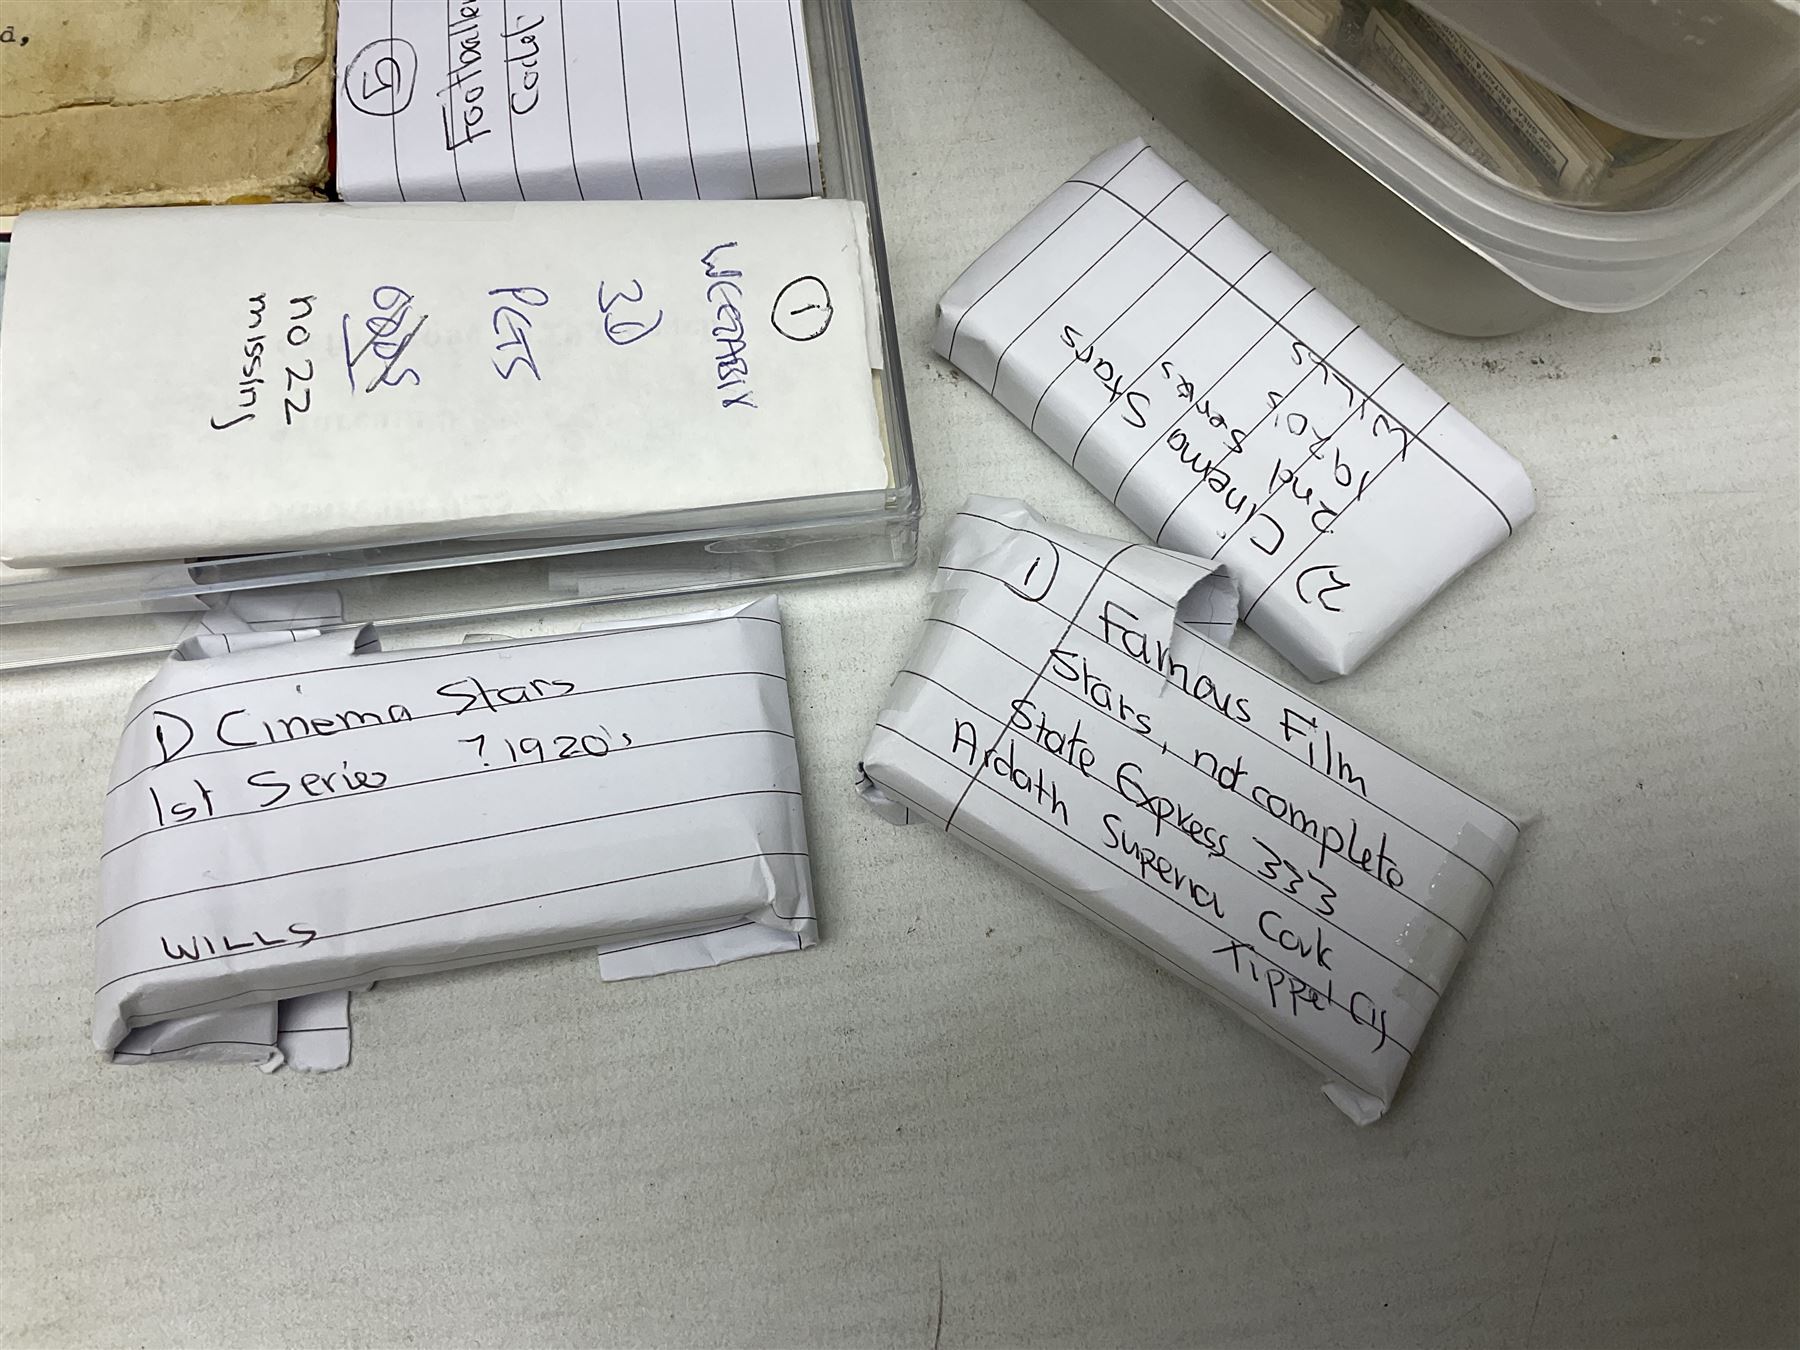 d,
5
Footballer
WEETABIX
3D
PETS
no 22
missing
1
2) Cinema Stars
2nd series
1920's
Wills
1) Cinema Stars
1st Series ? 1920's
WILLS
1 Famous Film
Stars, not complete
State Express 333
Ardath Superior Cork
Tipped Cig